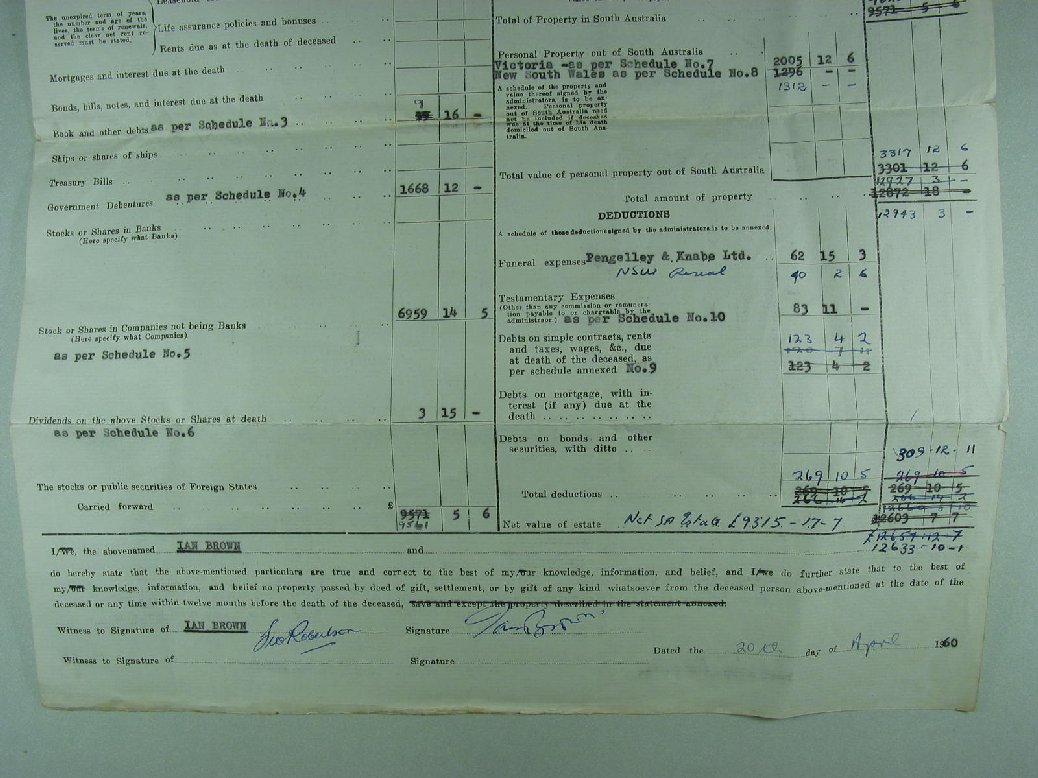 The unexpired term of years,
the number and age of the
lives, the term of renewals,
and the clear net rent re-
served must be stated.
Life assurance policies and bonuses
Rents due as at the death of deceased
Mortgages and interest due at the death
Bonds, bills, notes, and interest due at the death
9
Book and other debts as per Schedule No.3 16 -
Ships or shares of ships
Treasury Bills
Government Debentures as per Schedule No.4 1668 12 -
Stocks or Shares in Banks
(Here specify what Banks)
6959 14 5
Stock or Shares in Companies not being Banks
(Here specify what Companies)
as per Schedule No.5
Dividends on the above Stocks or Shares at death 3 15 -
as per Schedule No.6
The stocks or public securities of Foreign States
Carried forward £ 9571 5 6
9561
Total of Property in South Australia 9571 5 6
Personal Property out of South Australia
Victoria -as per Schedule No.7 2005 12 6
New South Wales as per Schedule No.8 1296 - -
1312 - -
A schedule of the property and
value thereof signed by the
administrators is to be an-
nexed. Personal property
out of South Australia need
not be included if deceased
was at the time of his death
domiciled out of South Aus-
tralia.
3317 12 6
Total value of personal property out of South Australia 3301 12 6
12927 3 -
Total amount of property 12872 18 -
12943 3 -
DEDUCTIONS
A schedule of these deductions signed by the administrator is to be annexed
Funeral expenses Pengelley & Knabe Ltd. 62 15 3
NSW Burial 40 2 6
Testamentary Expenses
(Other than any commission or remunera-
tion payable to or chargeable by the
administrator) as per Schedule No.10 83 11 -
Debts on simple contracts, rents 123 4 2
and taxes, wages, &c., due
at death of the deceased, as
per schedule annexed No.9 123 4 2
Debts on mortgage, with in-
terest (if any) due at the
death
Debts on bonds and other
securities, with ditto
309 - 12 - 11
269 10 5 269 10 5
Total deductions 269 10 5 269 10 5
Net value of estate Net SA Estate £9315-17-7 12603 7 7
£12657-12-7
12633-10-1
I/we, the abovenamed IAN BROWN and
do hereby state that the above-mentioned particulars are true and correct to the best of my/our knowledge, information, and belief, and I/we do further state that to the best of
my/our knowledge, information, and belief no property passed by deed of gift, settlement, or by gift of any kind whatsoever from the deceased person above-mentioned at the date of the
deceased or any time within twelve months before the death of the deceased, save and except the property described in the statement annexed.
Witness to Signature of IAN BROWN Signature Ian Brown
Dated the 20th day of April 1960
Witness to Signature of Signature